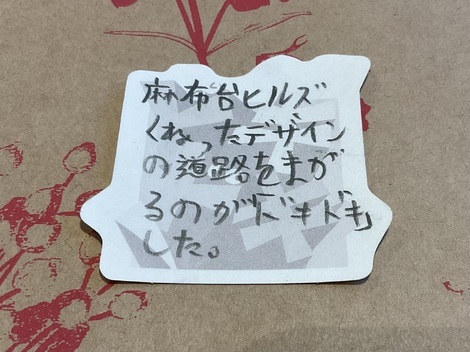 麻布台ヒルズ
くねったデザイン
の道路をまが
るのが「ドキドキ」
した。